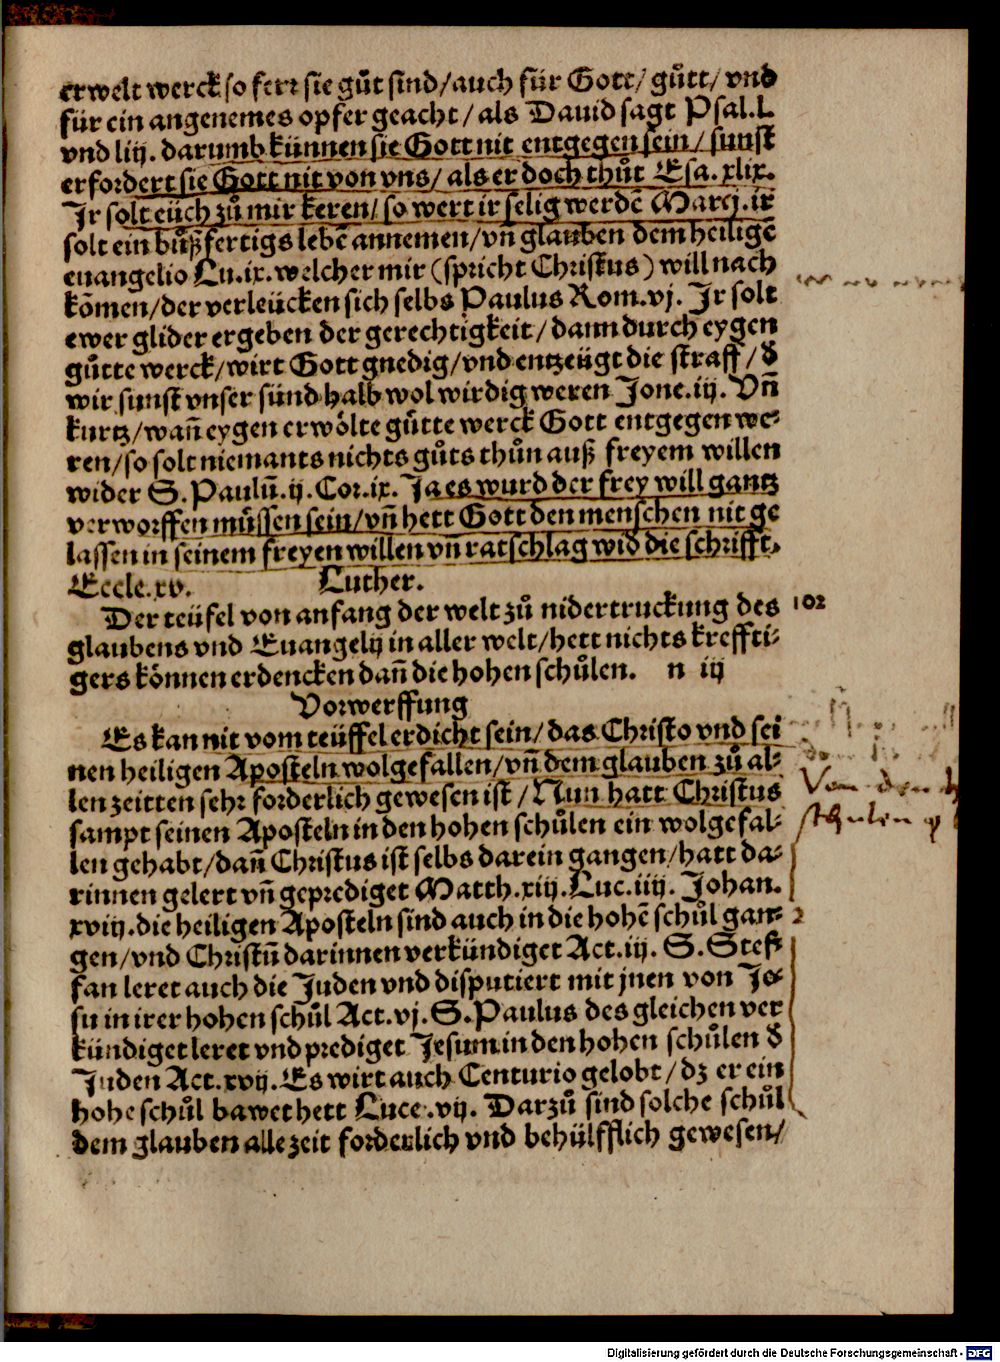 erwelt werck so ferr sie gůt sind/auch für Gott/ gůtt/ vnd
für ein angenemes opfer geacht/ als Dauid sagt Psal.L
vnd liij. darumb künnen sie Gott nit entgegen sein/ sunst
erfordert sie Gott nit von vns/ als er doch thůt Esa. xlix.
Ir solt eüch zů mir keren/ so wert ir selig werdē Marcj. ix
solt ein bůßfertigs lebē annemen/vn̄ glauben dem heiligē
euangelio Lu.ix. welcher mir (spricht Christus) will nach
kōmen/der verleücken sich selbs Paulus Rom.vj. Ir solt
ewer glider ergeben der gerechtigkeit/ dann durch eygen
gůtte werck/wirt Gott gnedig/vnd entzeügt die straff/ d
wir sunst vnser sünd halb wol wirdig weren Jone.iij. Vn̄
kurtz/wan̄ eygen erwölte gůtte werck Gott entgegen we-
ren/so solt niemants nichts gůts thůn auß freyem willen
wider S. Paulū.ij. Cor.ix. Ja es wurd der frey will gantz
verworffen müssen sein/vn̄ hett Gott den menschen nit ge
lassen in seinem freyen willen vn̄ ratschlag wid die schrifft.
Eccle.xv. Luther.
Der teüfel von anfang der welt zů nidertruckung des 102
glaubens vnd Euangelij in aller welt/hett nichts kreffti-
gers können erdencken dan̄ die hohen schůlen. n iij
Vorwerffung
Es kan nit vom teüffel erdicht sein/das Christo vnd sei
nen heiligen Aposteln wolgefallen/vn̄ dem glauben zů al-
len zeitten sehr forderlich gewesen ist/Nun hatt Christus
sampt seinen Aposteln in den hohen schůlen ein wolgefal-
len gehabt/dan̄ Christus ist selbs darein gangen/hatt da-
rinnen gelert vn̄ geprediget Matth.xiij.Luc.iiij. Johan.
xviij.die heiligen Aposteln sind auch in die hohē schůl gan-
gen/vnd Christū darinnen verkündiget Act.iij. S. Stef-
fan leret auch die Juden vnd disputiert mit jnen von Je-
su in irer hohen schůl Act.vj. S. Paulus des gleichen ver
kündiget leret vnd prediget Jesum in den hohen schůlen d
Juden Act.xvij. Es wirt auch Centurio gelobt/ dz er ein
hohe schůl bawet hett Luce.vij. Darzů sind solche schůl
dem glauben alle zeit forderlich vnd behülfflich gewesen/
Von den
schulen
2
Digitalisierung gefördert durch die Deutsche Forschungsgemeinschaft - DFG